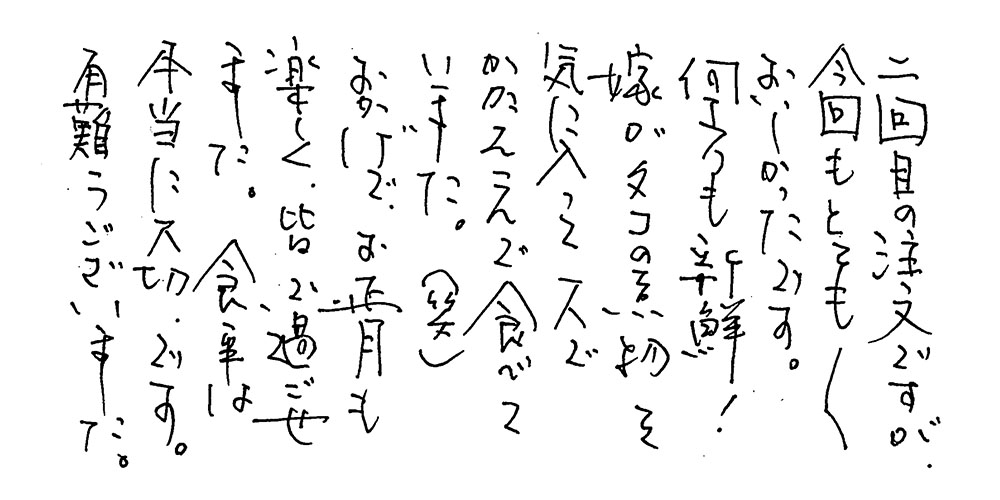 二回目の注文ですが、
今回もとても〱
おいしかったです。
何よりも新鮮!
嫁がタコの煮物を
気に入って一人で
かかえこんで食べて
いました。(笑)
おかげで、お正月も
楽しく、皆が過ごせ
ました。食事は
本当に大切です。
有難うございました。